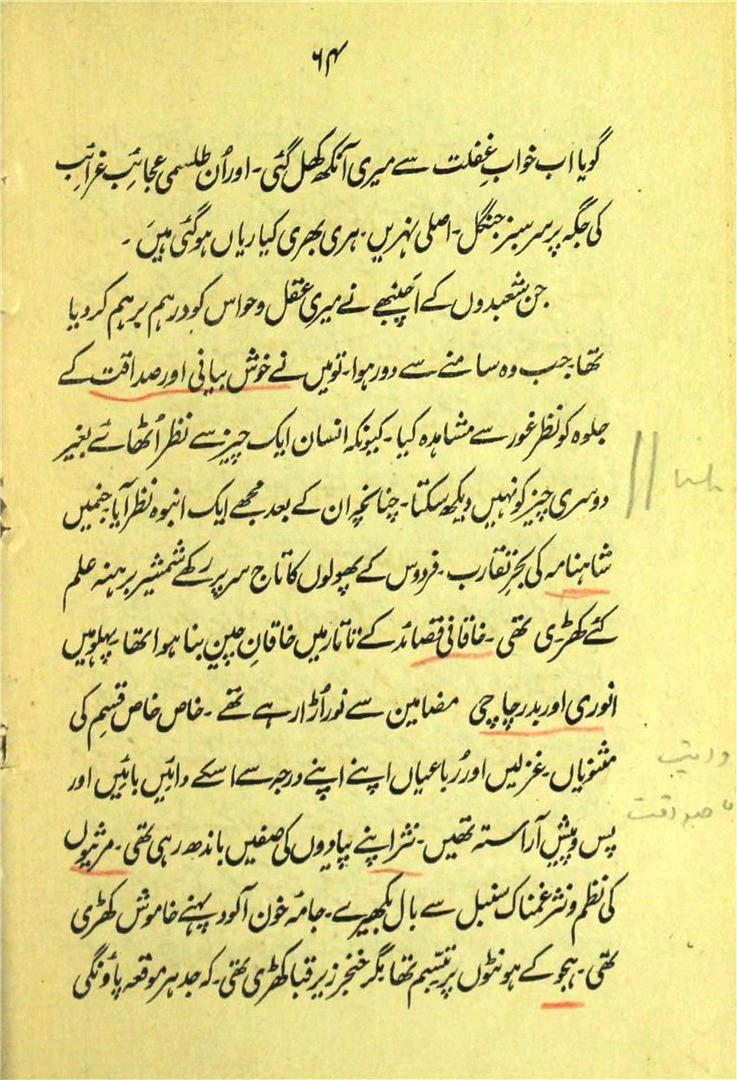 ۶۴
گویا اب خوابِ غفلت سے میری آنکھ کھل گئی۔ اور اُن طلسمی عجائب غرائب
کی جگہ پر سرسبز جنگل۔ اصلی نہریں۔ ہری بھری کیاریاں ہوگئی ہیں۔
جن شعبدوں کے اچنبھے نے میری عقل و حواس کو درہم برہم کر دیا
تھا۔ جب وہ سامنے سے دور ہوا۔ تو میں نے خوش بیانی اور صداقت کے
جلوہ کو نظر غور سے مشاہدہ کیا۔ کیونکہ انسان ایک چیز سے نظر اُٹھائے بغیر
دوسری چیز کو نہیں دیکھ سکتا۔ چنانچہ ان کے بعد مجھے ایک انبوہ نظر آیا جنمیں
شاہنامہ کی بحرِ تقارب۔ فردوس کے پھولوں کا تاج سر پر رکھے شمشیر برہنہ علم
کئے کھڑی تھی۔ خاقانی قصائد کے تاتار میں خاقانِ چین بنا ہوا تھا۔ پہلو میں
انوری اور بدر چاچی مضامین سے نور اُڑا رہے تھے۔ خاص خاص قسم کی
مثنویاں۔ غزلیں اور رُباعیاں اپنے اپنے درجہ سے اسکے دائیں بائیں اور
پس و پیش آراستہ تھیں۔ نثر اپنے پیادوں کی صفیں باندھ رہی تھی۔ مرثیوں
کی نظم و نثر غمناک سنبل سے بال بکھیرے۔ جامۂ خون آلود پہنے خاموش کھڑی
تھی۔ ہجو کے ہونٹوں پر تبسّم تھا مگر خنجر زیر قبا کھڑی تھی۔ کہ جدھر موقعہ پاؤنگی
صداقت